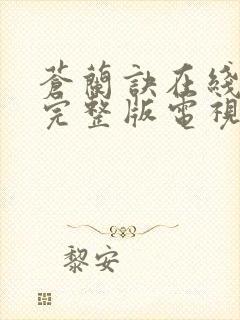 蒼蘭訣在綫
完整版電視
黎安